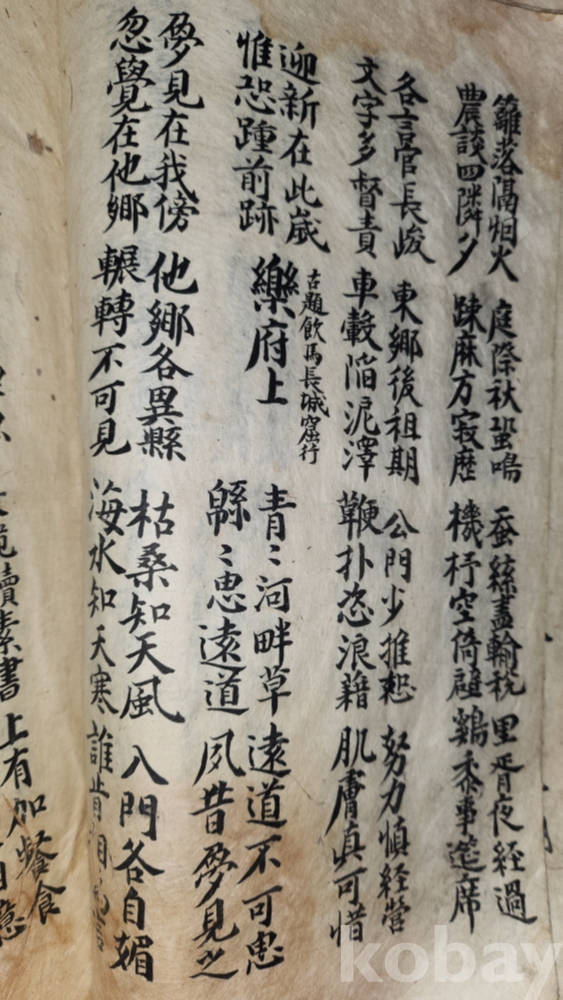 籬落隔烟火 庭際秋蛩鳴 蚕絲盡輸稅 里胥夜經過
農談四隣夕 踈麻方寂歷 機杼空倚壁 鷄黍事筵席
各言官長峻 東鄉後租期 公門少推恕 努力慎經營
文字多督責 車轂陷泥澤 鞭扑恣浪藉 肌膚眞可惜
迎新在此歲
惟恐踵前跡
樂府上
古題飲馬長城窟行
青〻河畔草 遠道不可思
緜〻思遠道 夙昔夢見之
夢見在我傍 他鄉各異縣 枯桑知天風 入門各自媚
忽覺在他鄉 輾轉不可見 海水知天寒 誰肯相
跪讀素書 上有加餐食
kobay